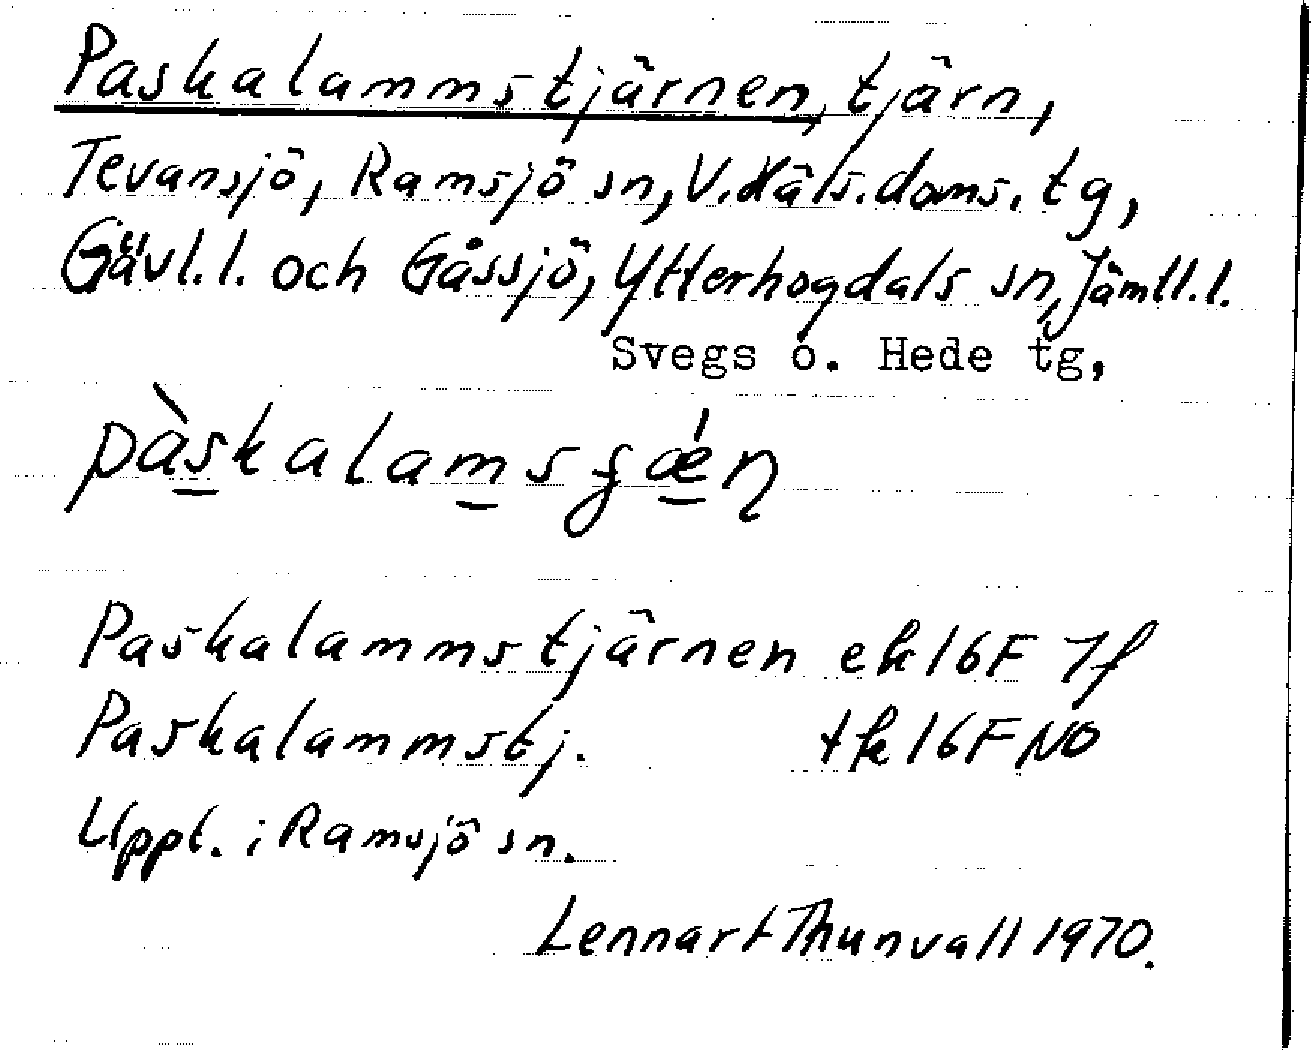 Paskalammstjärnen, tjärn,
Tevansjö, Ramsjö sn, V. Häls. doms. tg,
Gävl. l. och Gåssjö, Ytterhogdals sn, Jämtl. l.
Svegs o. Hede tg,
pàskalamsʂǽɳ
Paskalammstjärnen ek 16F 7f
Paskalammstj. tk 16F NO
Uppt. i Ramsjö sn.
Lennart Thunvall 1970.